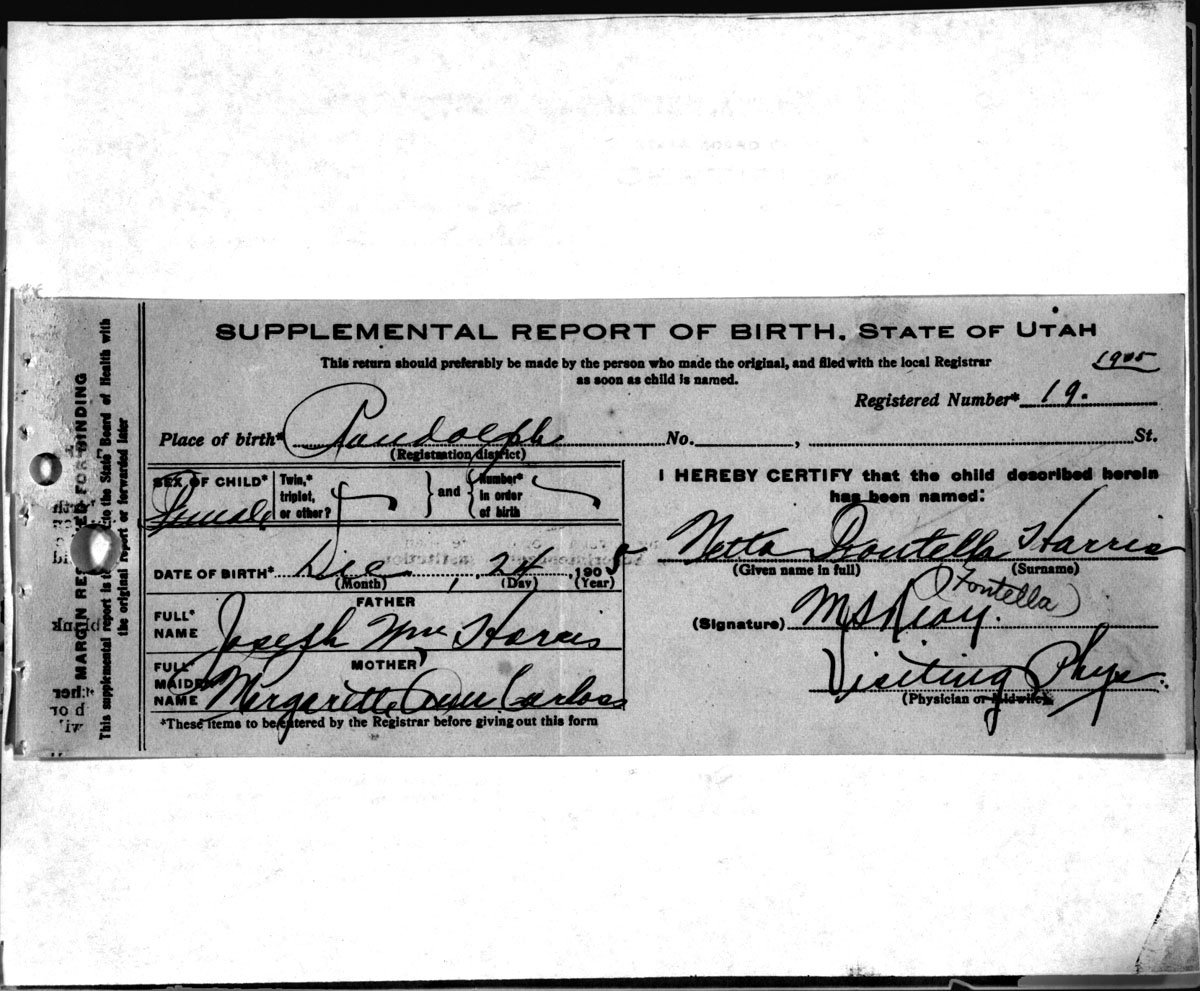 SUPPLEMENTAL REPORT OF BIRTH, STATE OF UTAH
This return should preferably be made by the person who made the original, and filed with the local Registrar
as soon as child is named.
1905
Registered Number* 19.
Place of birth* Randolph No. , St.
(Registration district)
SEX OF CHILD* Female
Twin,* triplet, or other?
and
Number* in order of birth
I HEREBY CERTIFY that the child described herein
has been named:
Netta Fontella Harris
(Given name in full) (Surname)
(Fontella)
DATE OF BIRTH* Dec , 24 , 1905
(Month) (Day) (Year)
FATHER
FULL* NAME Joseph Wm Harris
MOTHER
FULL* MAIDEN NAME Margarette Ann
(Signature)
Visiting Phys.
(Physician or Midwife)
*These items to be entered by the Registrar before giving out this form
MARGIN RESERVED FOR BINDING
This supplemental report is to the State Board of Health with
the original report or forwarded later